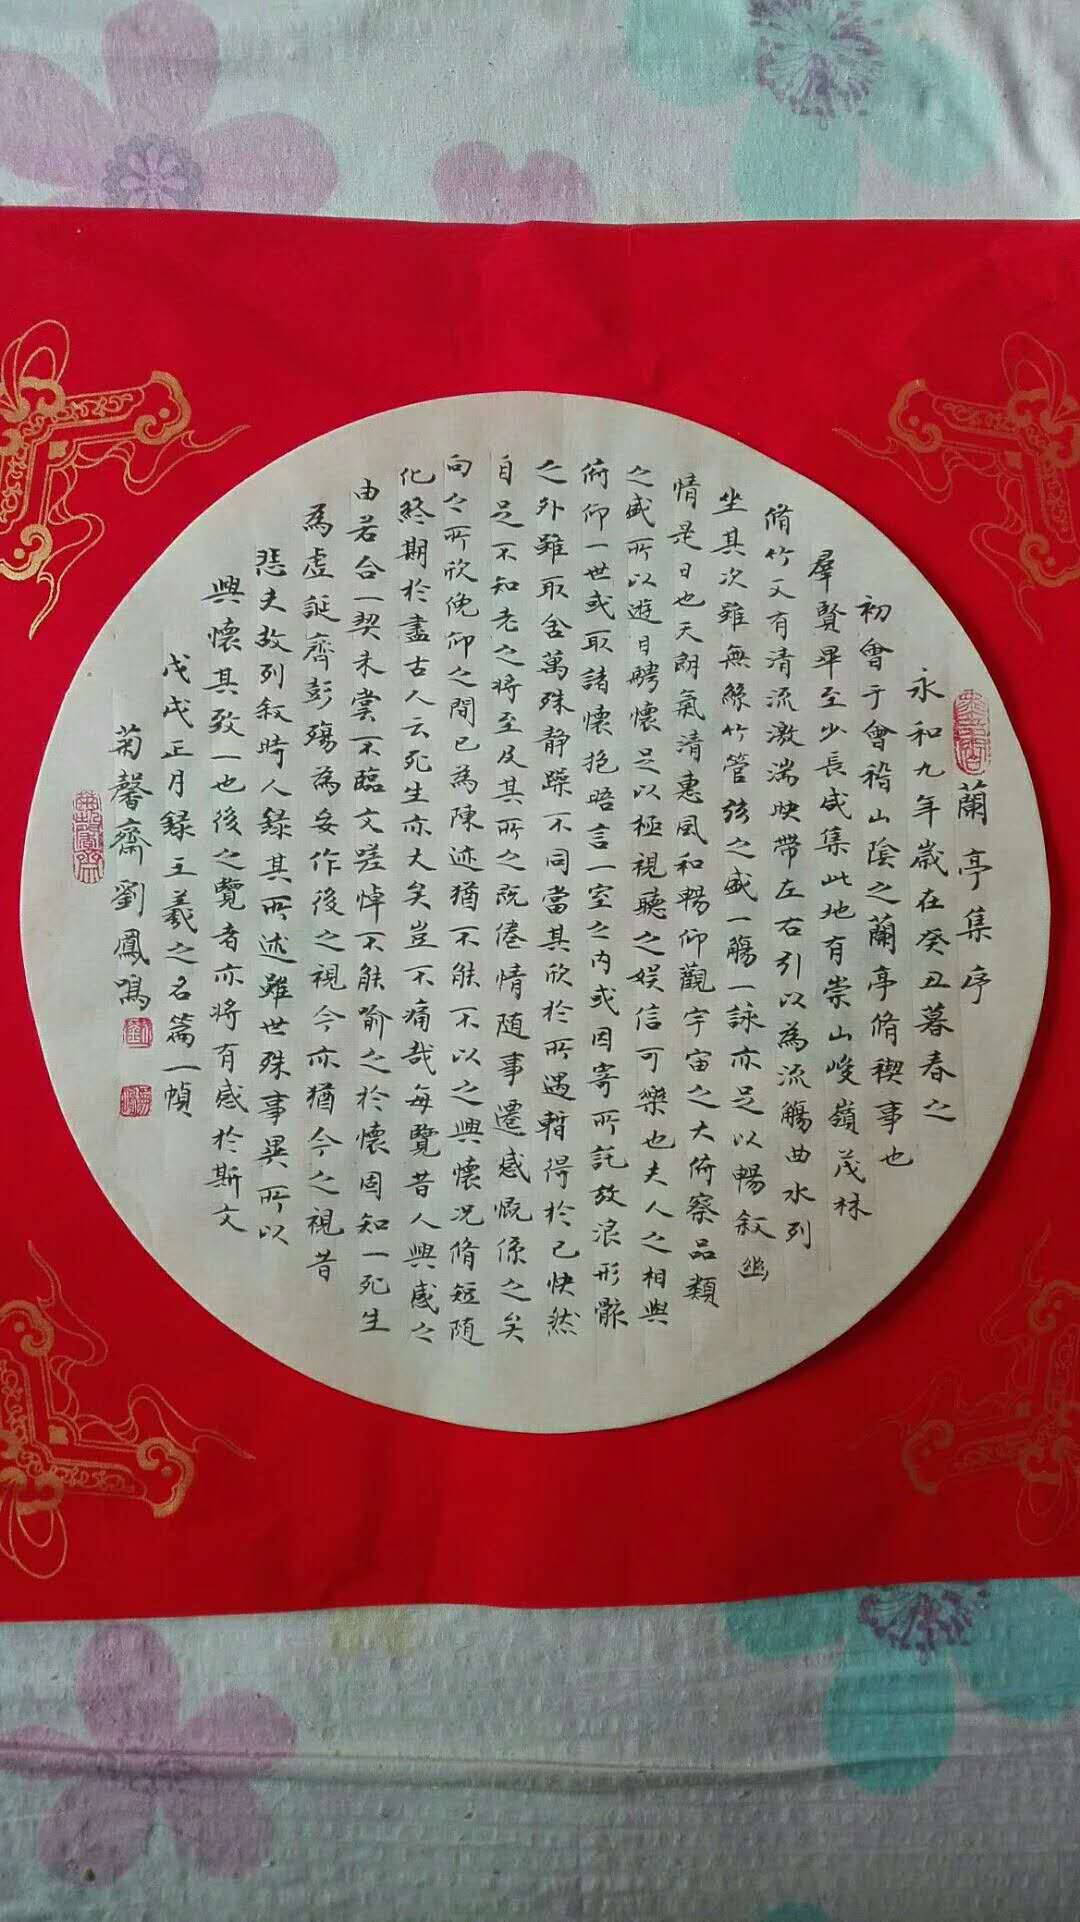 蘭亭集序
永和九年歲在癸丑暮春之
初會于會稽山陰之蘭亭脩禊事也
羣賢畢至少長咸集此地有崇山峻嶺茂林
脩竹又有清流激湍映帶左右引以為流觴曲水列
坐其次雖無絲竹管弦之盛一觴一詠亦足以暢敘幽
情是日也天朗氣清惠風和暢仰觀宇宙之大俯察品類
之盛所以遊目騁懷足以極視聽之娛信可樂也夫人之相與
俯仰一世或取諸懷抱晤言一室之內或因寄所託放浪形骸
之外雖取舍萬殊靜躁不同當其欣於所遇暫得於己快然
自足不知老之將至及其所之既倦情隨事遷感慨係之矣
向之所欣俛仰之間已為陳迹猶不能不以之興懷況脩短隨
化終期於盡古人云死生亦大矣豈不痛哉每覽昔人興感之
由若合一契未嘗不臨文嗟悼不能喻之於懷固知一死生
為虛誕齊彭殤為妄作後之視今亦猶今之視昔
悲夫故列敘時人錄其所述雖世殊事異所以
興懷其致一也後之覽者亦將有感於斯文
戊戌正月録王羲之名篇一幀
菊馨齋劉鳳鳴